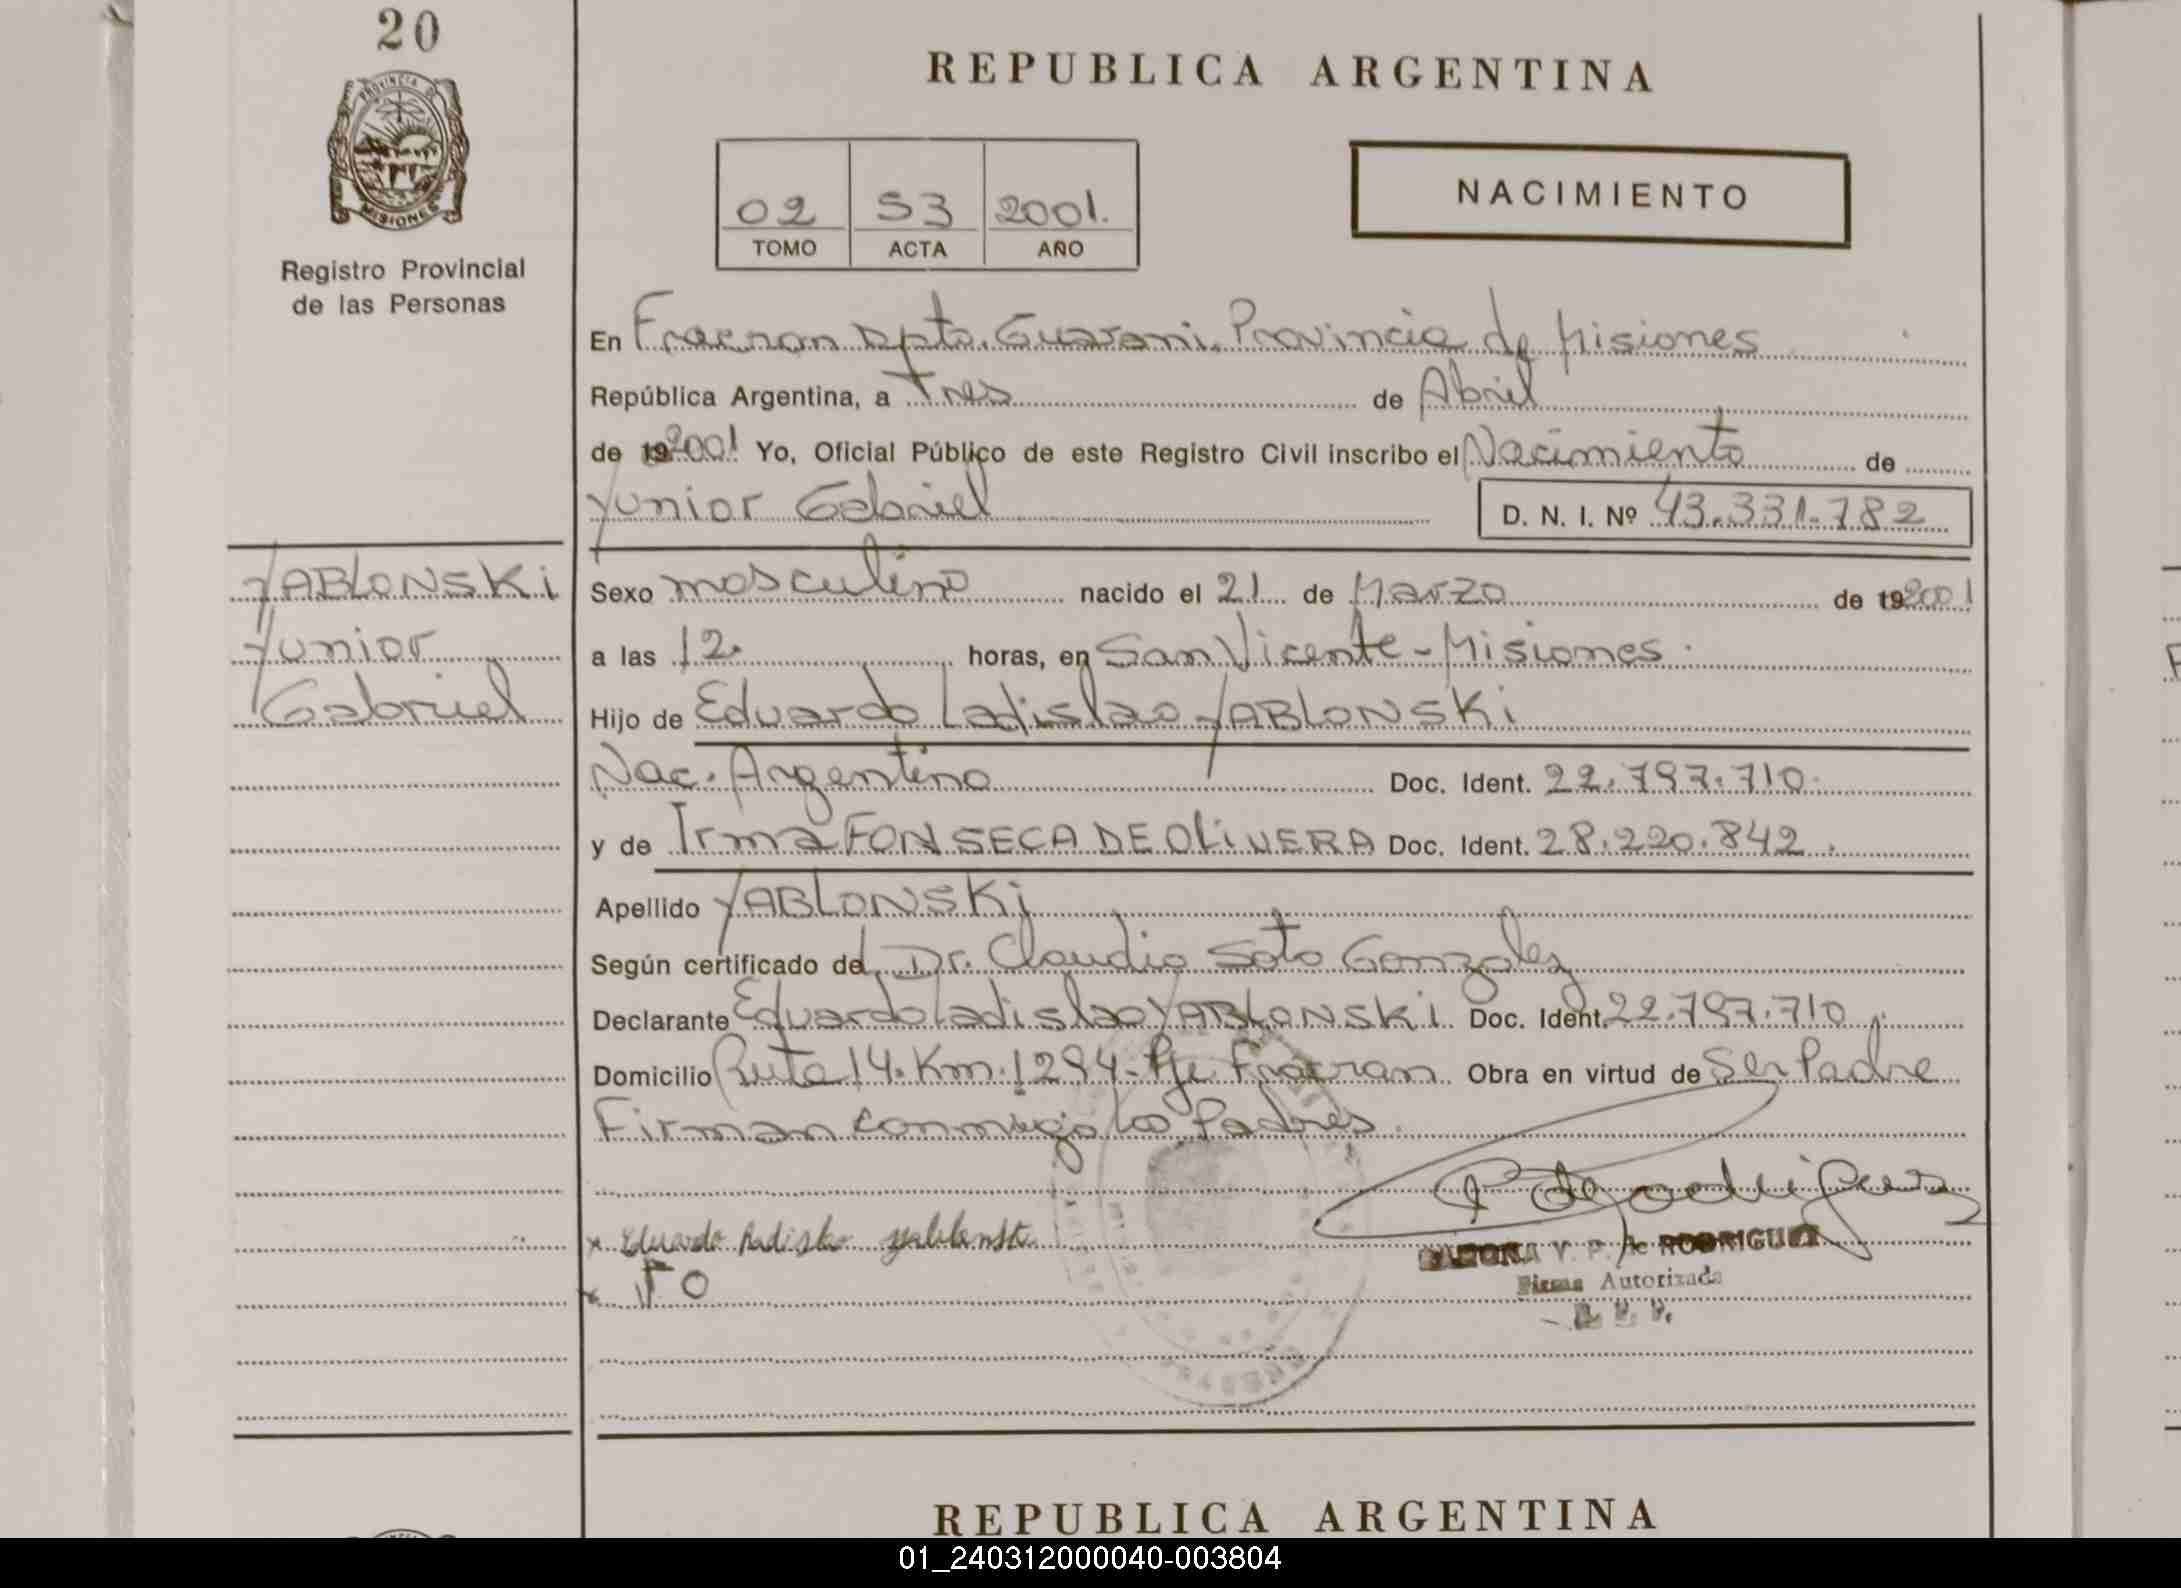 20
PROVINCIA DE
MISIONES
Registro Provincial
de las Personas
REPUBLICA ARGENTINA
02 53 2001.
TOMO ACTA AÑO
NACIMIENTO
En Fracran Dpto. Guarani. Provincia de Misiones
República Argentina, a Tres de Abril
de 19 2001 Yo, Oficial Público de este Registro Civil inscribo el Nacimiento de
Yunior Gabriel D. N. I. Nº 43.331.782
YABLONSKi
Yunior
Gabriel
Sexo masculino nacido el 21 de Marzo de 19 2001
a las 12. horas, en San Vicente - Misiones.
Hijo de Eduardo Ladislao YABLONSKi
Nac. Argentino Doc. Ident. 22.797.710.
y de Irma FONSECA DE OLIVERA Doc. Ident. 28.220.842.
Apellido YABLONSKi
Según certificado del Dr. Claudio Soto Gonzalez
Declarante Eduardo Ladislao YABLONSKi Doc. Ident. 22.797.710.
Domicilio Ruta 14. Km. 1294. Pje Fracran Obra en virtud de Ser Padre
Firman conmigo los Padres.
x Eduardo Ladislao Yablonski
x FO
V. P. de RODRIGUEZ
Firma Autorizada
REPUBLICA ARGENTINA
01_240312000040-003804